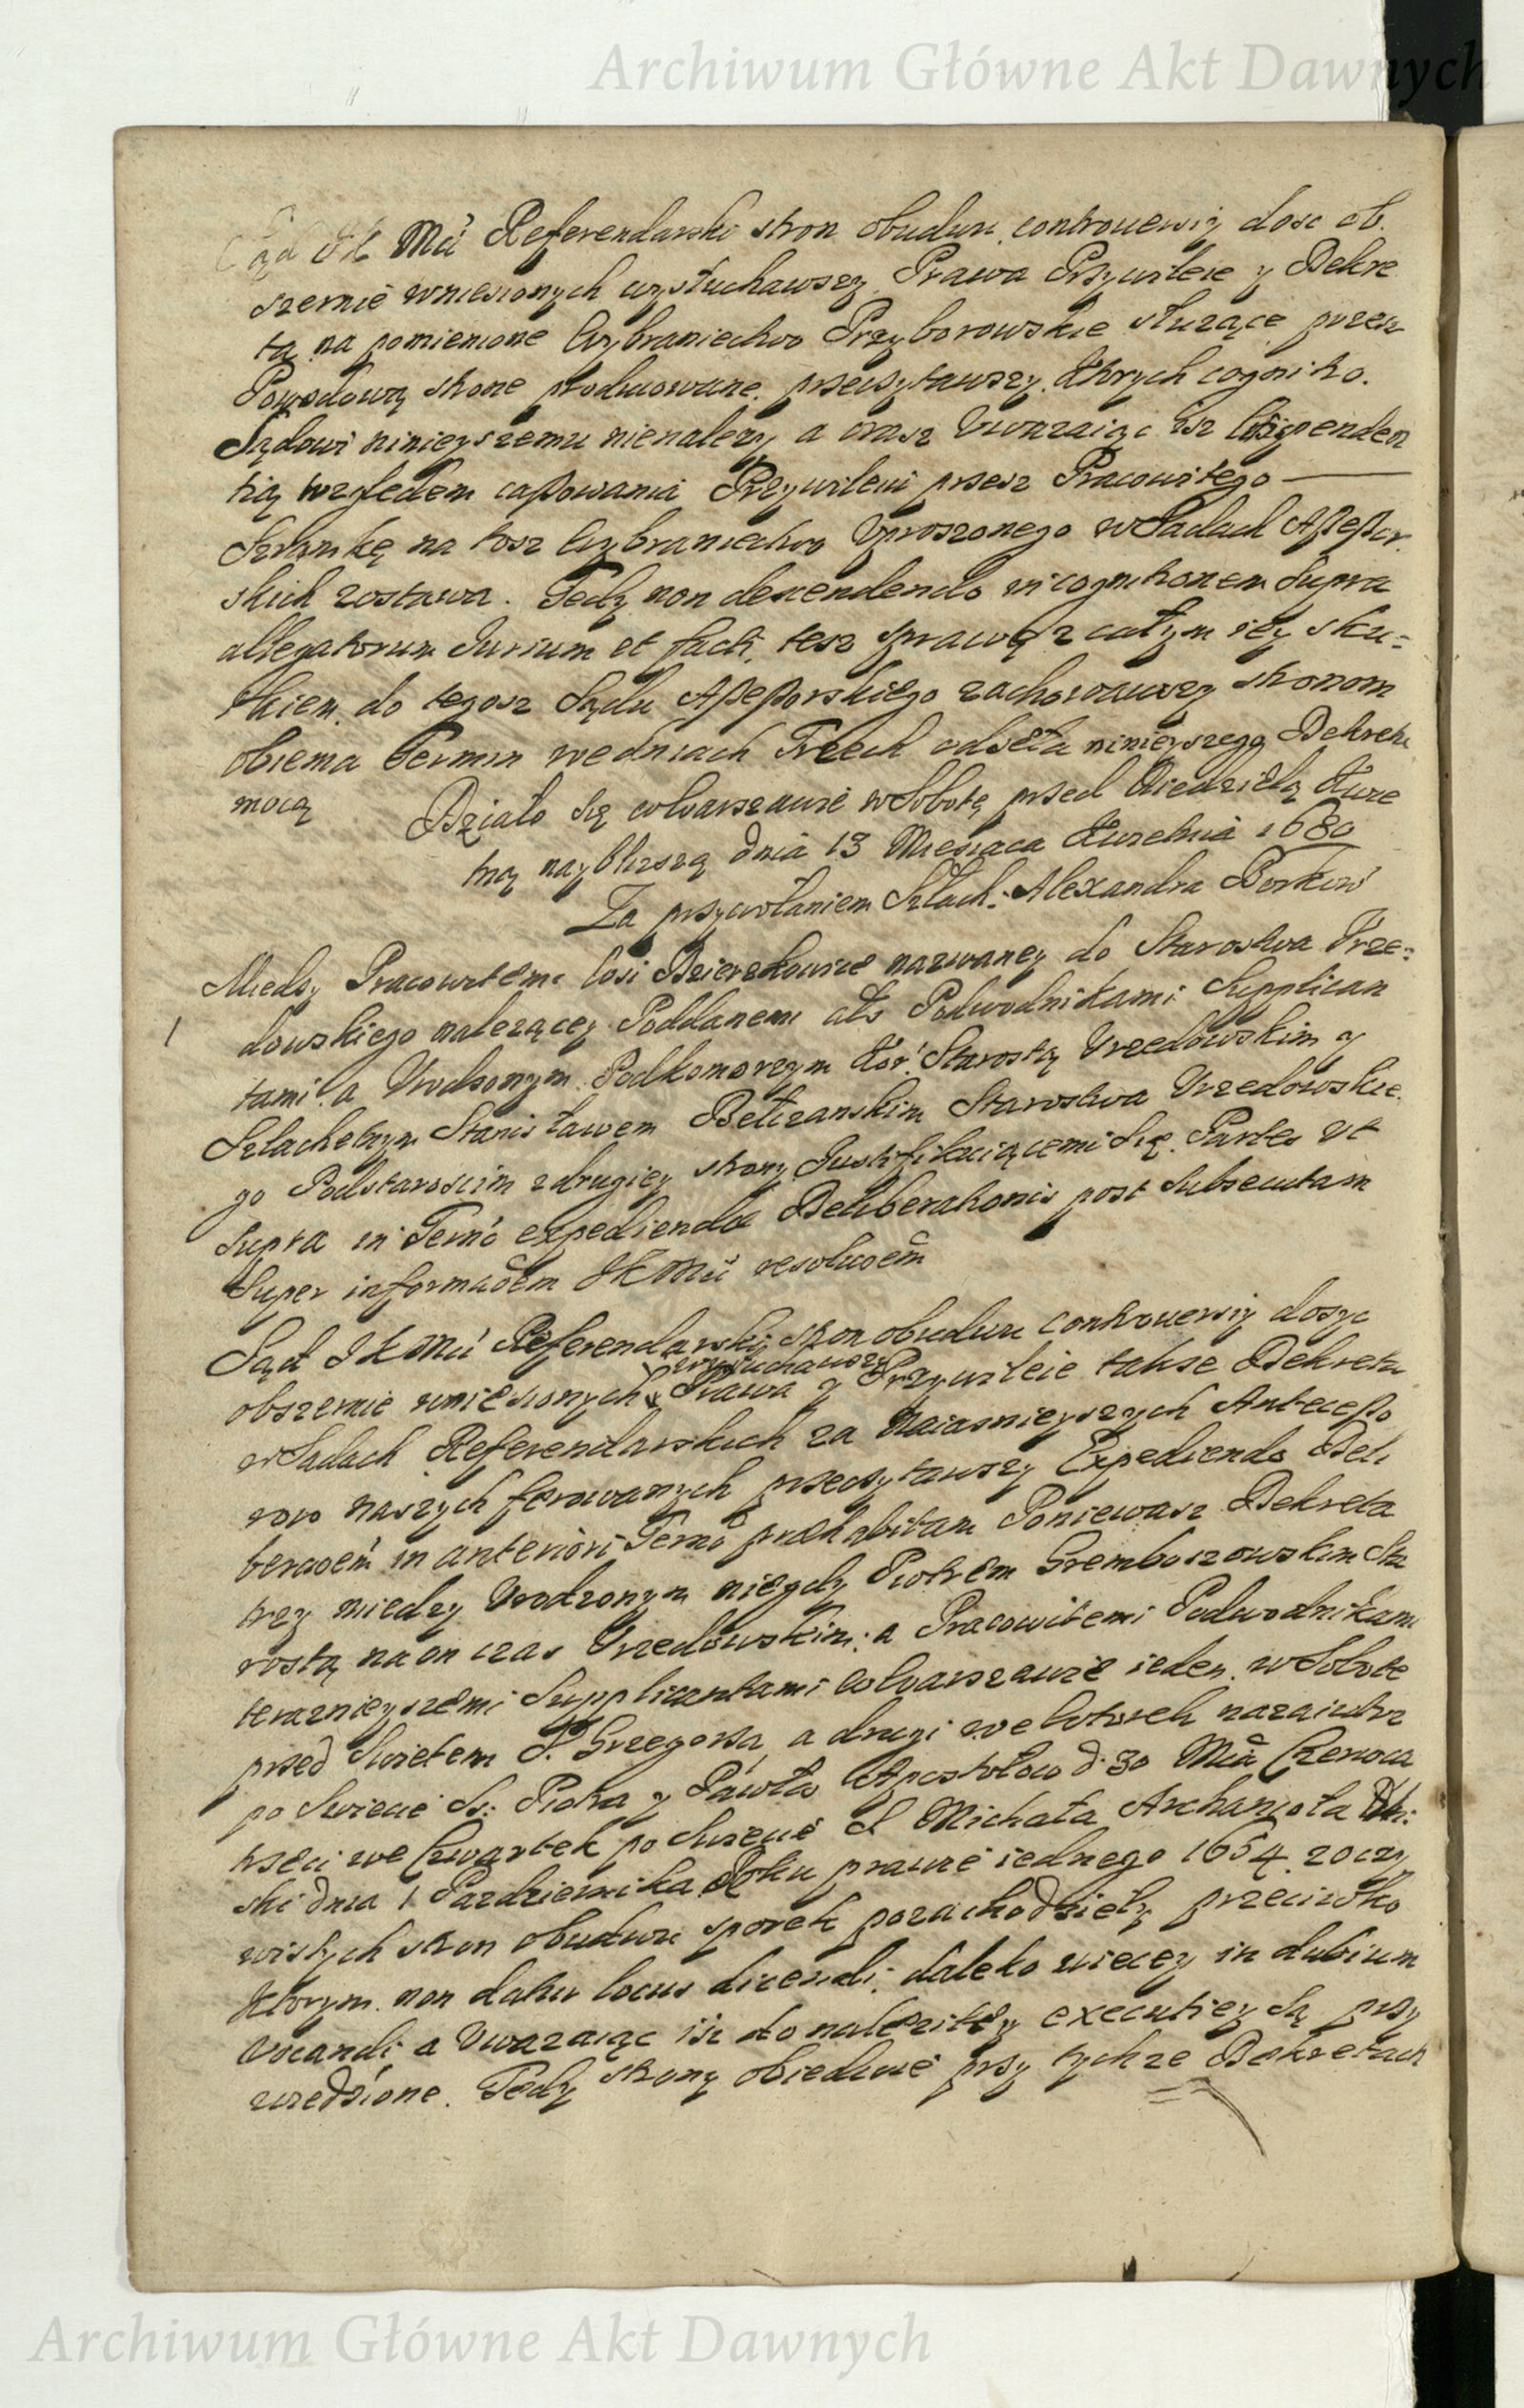 Archiwum Główne Akt Dawnych
Sąd JK Mci Referendarski stron obudwu controuersiy dosc ob.
szernie wniesionych wysłuchawszy, Prawa Przywileie y Dekre
ta na pomienione Wybraniectwo Przyborowskie słuzące przez
Powodową strone producowane przeczytawszy, ktorych cognitio.
Sądowi ninieyszemu nienalezy a oraz Uwazaiąc isz Litispenden
tią względem cassowania Przywileiu przesz Pracowitego
na tosz Wybraniectwo Uproszonego w Sadach Assessor
skich zostawa. Tedy non descendendo in cognitionem supra
allegatorum Jurium et facti, tesz sprawę z całym iey sku=
tkiem do tegosz Sądu Assessorskiego zachowawszy stronom
obiema Termin wedniach Trzech odseła ninieyszego Dekretu
mocą Działo się wWarszawie w Sobotę przed Niedzielą Kwie
tną naybliszszą dnia 13 Miesiaca Kwietnia 1680
Za przywołaniem Szlach: Alexandra Borkow
Miedzy Pracowitemi Wsi Dzierzkowice nazwaney do Starostwa Vrze=
dowskiego nalezącey Poddanemi als Podwodnikami Supplican
tami a Urodzonym Podkomorzym Kor: Starostą Vrzedowskim y
Szlachetnym Stanisławem Bełczanskim Starostwa Vrzedowskie
go Podstaroscim zdrugiey strony Justifikuiącemi Się. Partes vt
supra in Termo expediendae Deliberationis post subsecutam
super informaōem JKMci resoluōem
Sąd JKMci Referendarski stron obudwu controuersiy dosyc
wysłuchawszy
obszernie wniesionych Prawa y Przywileie takze Dekreta
w Sadach Referendarskich za Naiasnieyszych Antecesso
row naszych ferowanych przeczytawszy Expediendo Deli
beraōem in anteriori Termo praehabitam Poniewasz Dekreta
trzy miedzy Urodzonym niegdy Piotrem Gremboszowskim Sta
rostą na on czas Vrzedowskim: a Pracowitemi Podwodnikami
teraznieyszemi Supplicantami wWarszawie ieden w Sobote
przed Swietem S. Grzegorza a drugi we Wtorek nazaiutrz
po Swiecie SS: Piotra y Pawła Apostołow d: 30 Mca Czerwca
trzeci we Czwartek po Swiecie S Michała Archanioła
ski dnia 1 Pazdziernika Roku prawie iednego 1654 zoczy
wistych stron obudwu sporek pozachodzieły przeciwko
ktorym non datur locus dicendi, daleko wiecey in dubium
vocandi a Uwazaiąc isz do nalezitey executiey są przy
wiedzione. Tedy strony obiedwie przy tychze Dekretach
Archiwum Główne Akt Dawnych